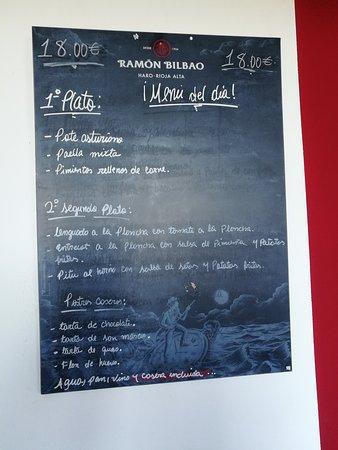 18.00€
DESDE 1924
RAMÓN BILBAO
HARO · RIOJA ALTA
18.00€
¡Menú del día!
1º Plato:
- Pote asturiano
- Paella mixta
- Pimientos rellenos de carne.
2º segundo Plato:
- Lenguado a la Plancha con tomate a la Plancha.
- Entrecot a la Plancha con salsa de Pimienta y Patatas
fritas.
- Pitu al horno con salsa de setas y Patatas fritas.
Postres Caseros:
- tarta de chocolate.
- tarta de san marcos.
- tarta de queso.
- Flan de huevo.
Agua, pan, vino y casera incluida...